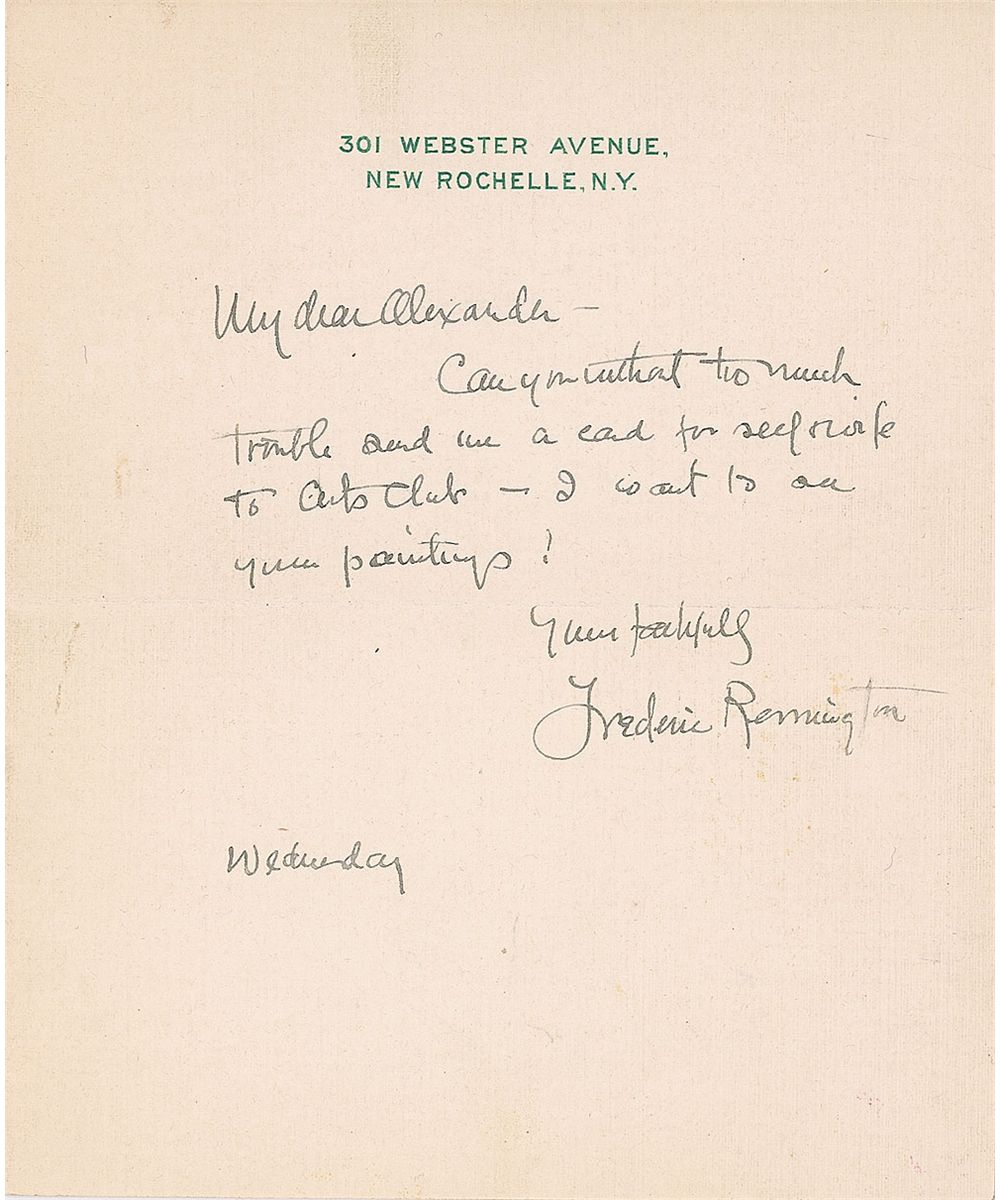 301 WEBSTER AVENUE,
NEW ROCHELLE, N.Y.
My dear Alexander —
Can you without too much
trouble send me a card for self & wife
to Arts Club — I want to see
your paintings!
Yours faithfully
Frederic Remington
Wednesday